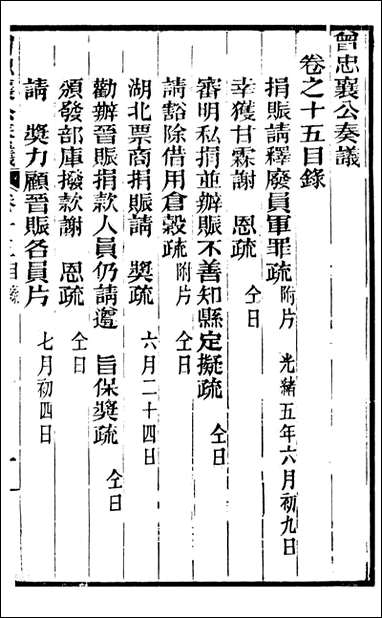 曾忠襄公奏議
卷之十五目錄
捐賑請釋廢員軍罪疏 附片 光緒五年六月初九日
幸獲甘霖謝 恩疏 仝日
審明私捐並辦賑不善知縣定擬疏 仝日
請豁除借用倉穀疏 附片 仝日
湖北票商捐賑請 獎疏 六月二十四日
勸辦晉賑捐款人員仍請遵 旨保獎疏 仝日
頒發部庫撥款謝 恩疏 仝日
請 獎力顧晉賑各員片 七月初四日